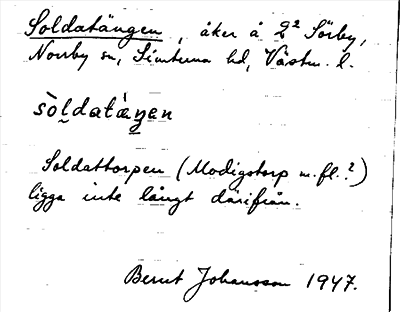 Soldatängen, åker å 2² Sörby,
Norrby sn, Simtuna hd, Västm. l.
sòldatàŋen
Soldattorpen (Modigstorp m.fl.?)
ligga inte långt därifrån.
Bernt Johansson 1947.